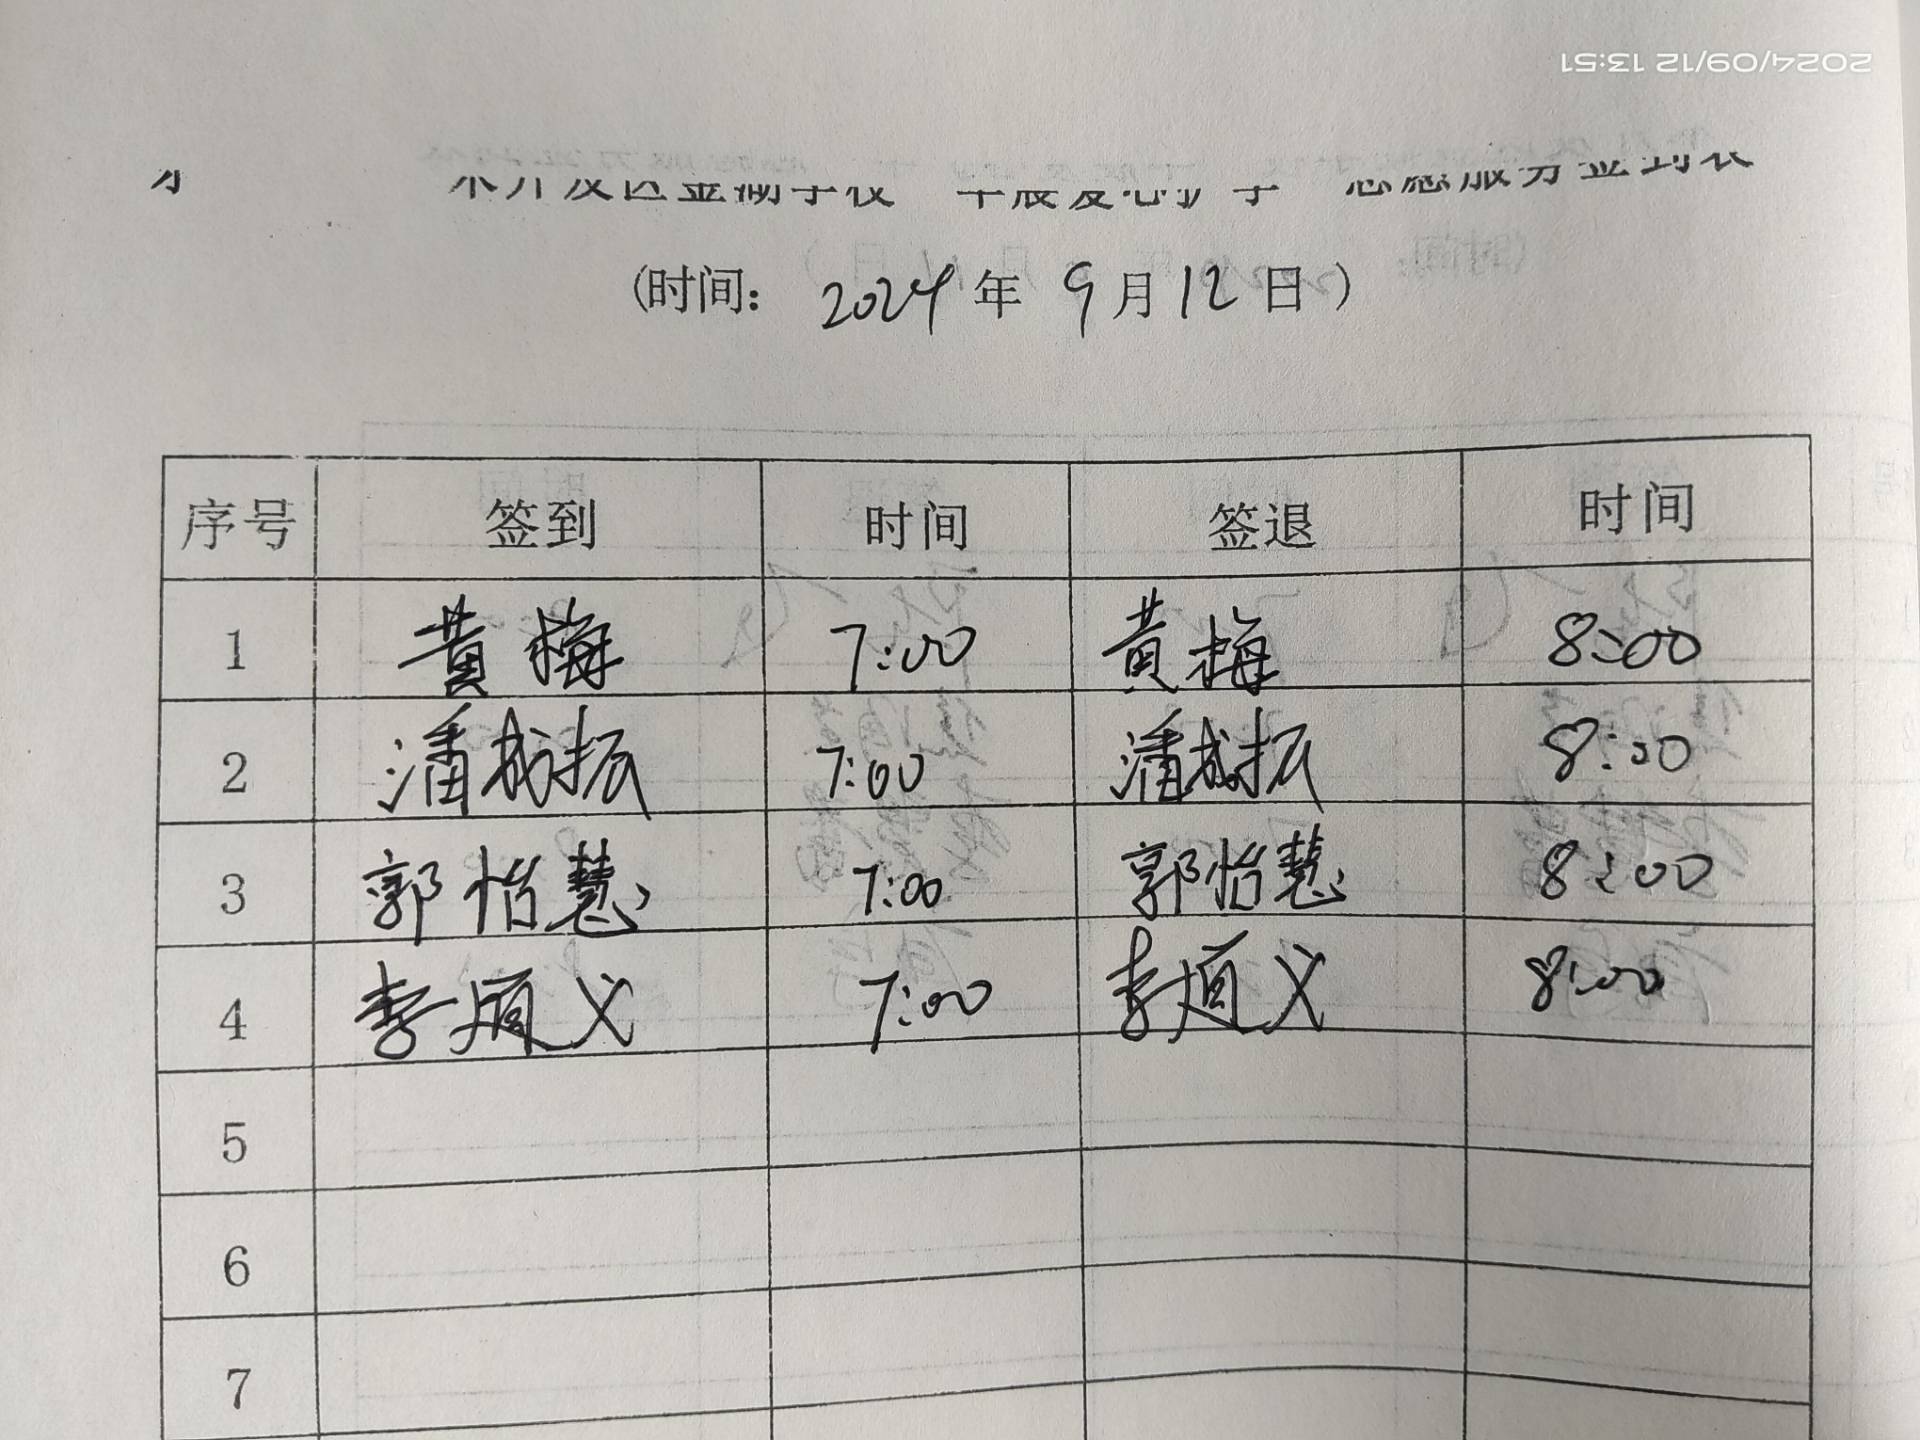 2024/09/12 13:51
开发区金湖学校
志愿服务签到表
(时间: 2024年9月12日)
序号 签到 时间 签退 时间
1 黄梅 7:00 黄梅 8:00
2 潘成振 7:00 潘成振 8:00
3 郭怡慧 7:00 郭怡慧 8:00
4 李 义 7:00 李 义 8:00
5
6
7